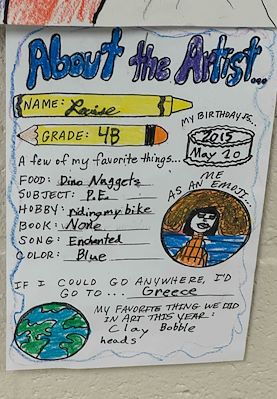 About the Artist...
NAME: Louise
GRADE: 4B
MY BIRTHDAY IS...
2015
May 20
A few of my favorite things...
FOOD: Dino Nuggets
SUBJECT: P.E.
HOBBY: riding my bike
BOOK: None
SONG: Enchanted
COLOR: Blue
ME
AS AN EMOJI...
IF I COULD GO ANYWHERE, I'D
GO TO... Greece
MY FAVORITE THING WE DID
IN ART THIS YEAR:
Clay Bobble
heads